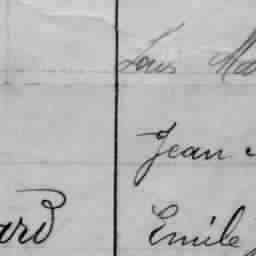 Louis Ma
Jean
ard
Emile